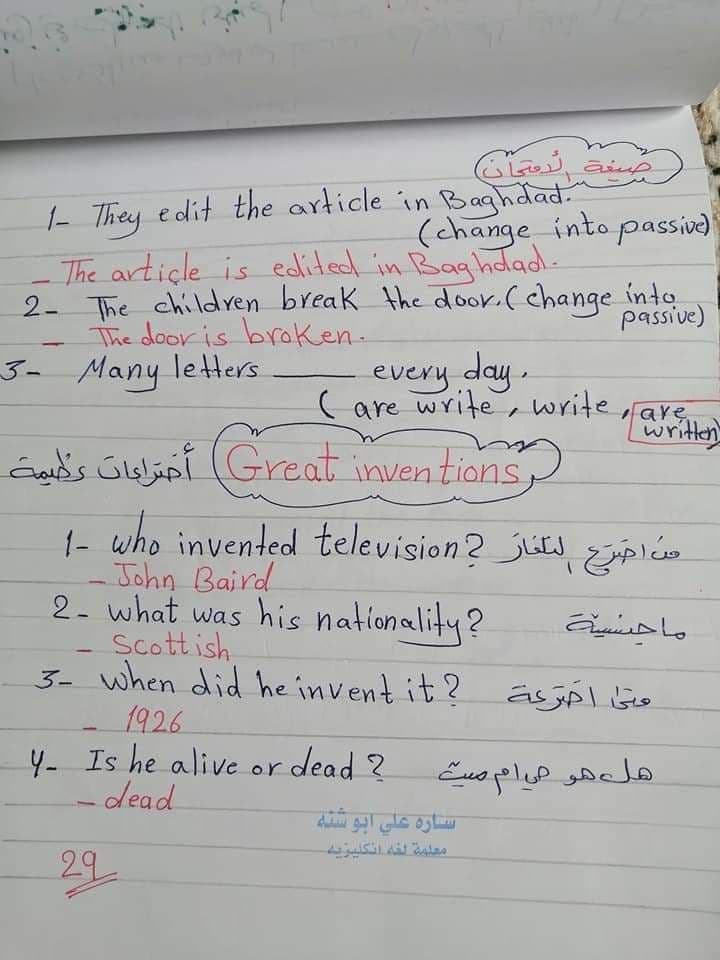 صيغة الأمتحان
1- They edit the article in Baghdad.
(change into passive)
- The article is edited in Baghdad.
2- The children break the door. (change into passive)
- The door is broken.
3- Many letters ____ every day.
( are write, write, are written)
Great inventions أختراعات عظيمة
1- who invented television? من اخترع التلفاز
- John Baird
2- what was his nationality? ما جنسيتة
- Scottish
3- when did he invent it? متى اخترعة
- 1926
4- Is he alive or dead? هل هو حي ام ميت
- dead
ساره علي ابو شنه
معلمة لغه انكليزيه
29